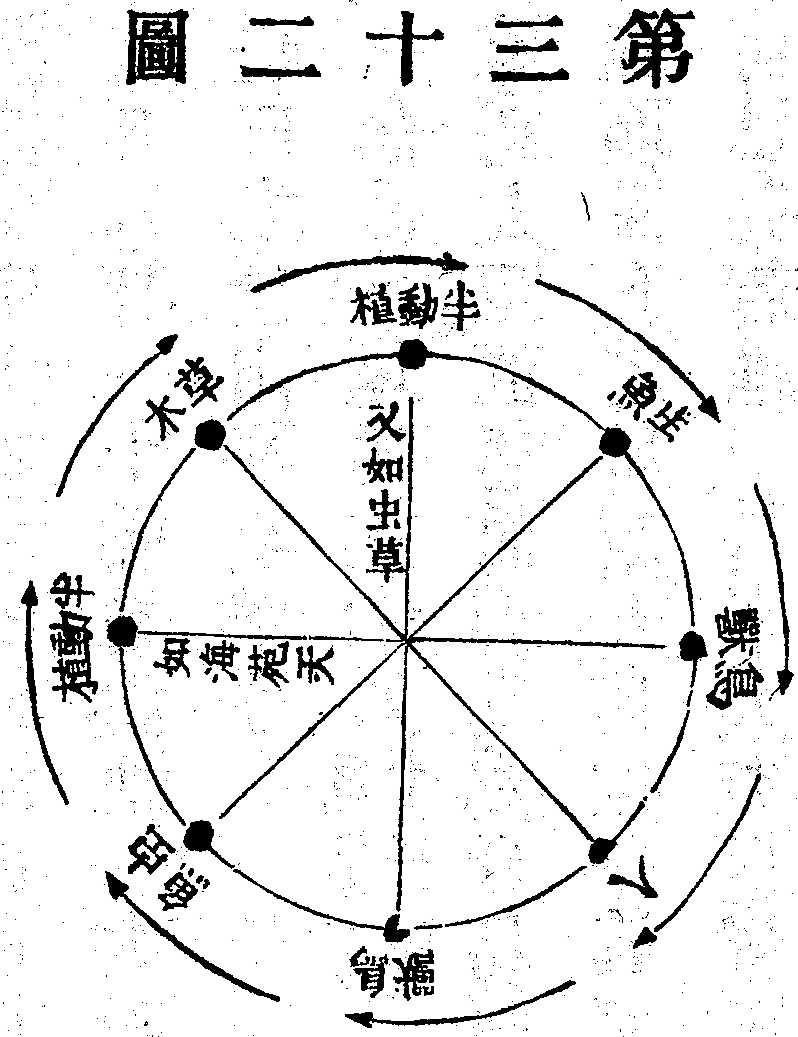 第三十二圖
半動植
虫魚
鳥獸
人
鳥獸
虫魚
半動植
草木
又如虫草
如海苑天